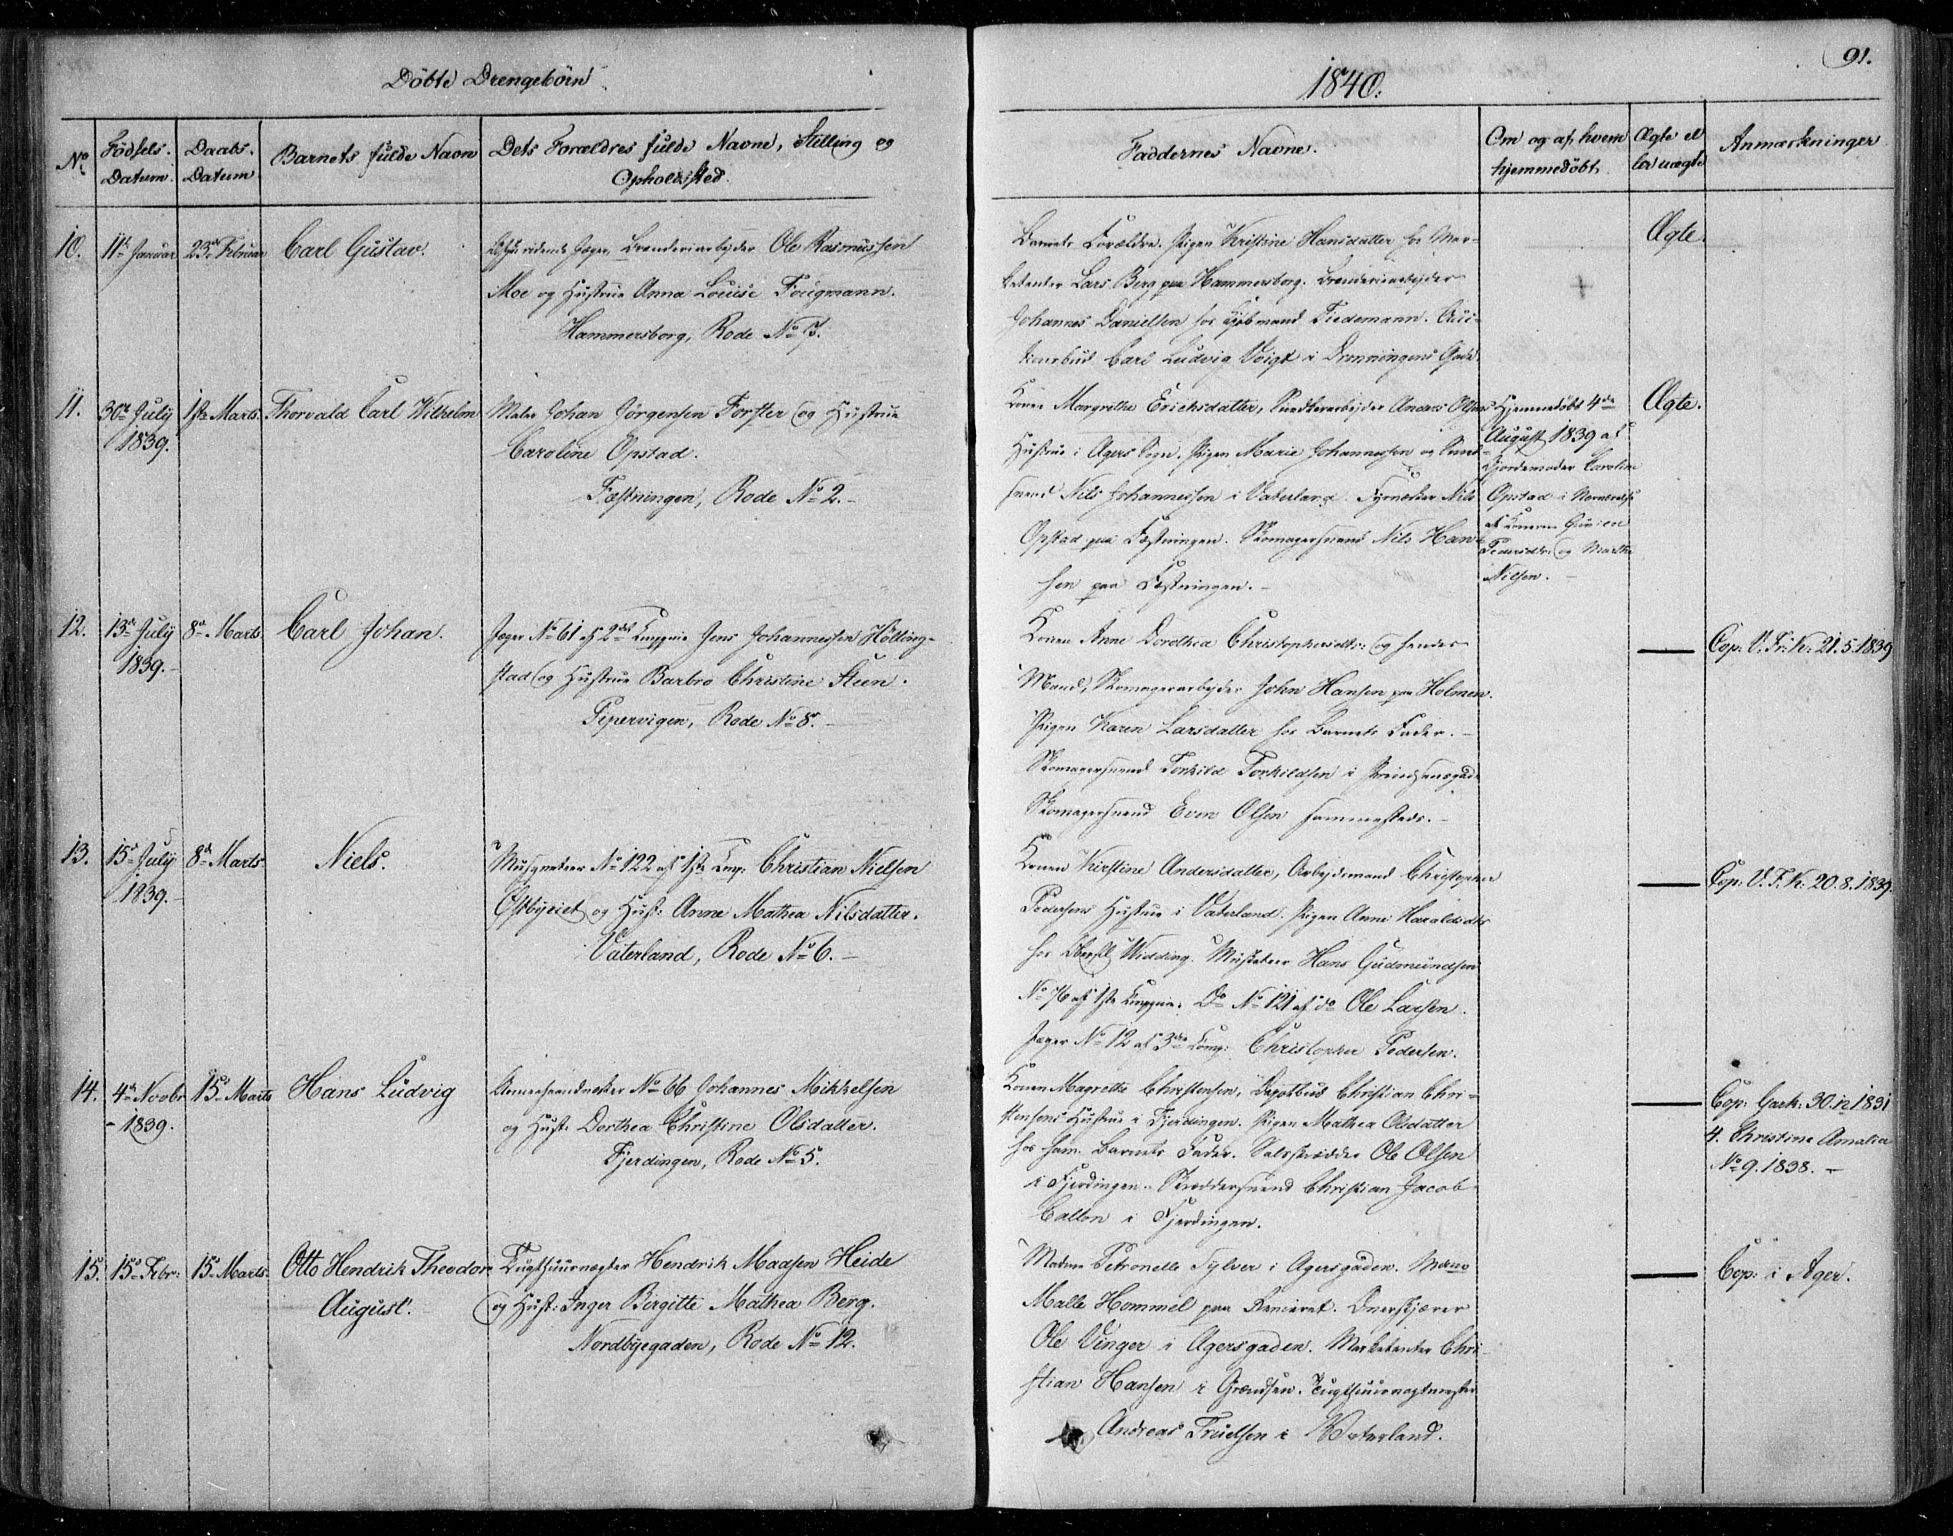 Döbte Drengebörn
No
Födsels-Datum.
Daabs-Datum
Barnets fulde Navn
Dets Forældres fulde Navne, Stilling og
Opholdssted.
10.
11te Januar
23de Februar
Carl Gustav.
ridende Jæger, Brenderiarbejder Ole Rasmussen
Moe og Hustrue Anna Louise Fougmann.
Hammersborg, Rode No 7.
11.
30te July
1839.
1ste Marts.
Thorvald Carl Wilhelm
Maler Johan Jörgensen Forster og Hustrue
Caroline Opstad.
Fæstningen, Rode No 2.-
12.
13de July
1839.-
8de Marts.
Carl Johan.
Jæger No 61 af 2det Compgnie Jens Johannessen Hölting-
stad og Hustrue Barbro Christine Steen.
Pipervigen, Rode No 8.-
13.
15de July
1839.-
8de Marts
Niels.
Musqueteer No 122 af 1ste Comp: Christian Nielsen
Östbyeiet og Hust: Anne Mathea Nilsdatter.
Vaterland, Rode No 6.-
14.
4de Novbr
-1839.
15de Marts
Hans Ludvig
No 66 Johannes Mikkelsen
og Hust: Dorthea Christine Olsdatter.
Fjerdingen, Rode No 5.
15.
15de Febr:
15de Marts.
Otto Hendrik Theodor
August.
Tugthuusvægter Hendrik Madsen Heide
og Hust: Inger Birgitte Mathea Berg.
Nordbyegaden, Rode No 12.
1840.
91.
Faddernes Navne.
Om og af hvem
hjemmedöbt.
Ægte el
ler uægte
Anmærkninger
Barnets Forældre. Pigen Kristine Hansdatter hos Mar-
ketenter Lars Berg paa Hammersborg. Brenderiearbejder
Johannes Danielsen hos Kjöbmand Tiedemann. Auc-
Carl Ludvig Voigt i Dronningens Gade
Ægte.
Konen Margrethe Erichsdatter, Snedkerarbejder Anders Olsens
Hustrue i Agers Sogn. Pigen Marie Johannessen og
svend Nils Johannessen i Vaterland. Nils
Opstad paa Fæstningen. Skomagersvend Nils Han-
sen paa Fæstningen.-
Hjemmedöbt 4de
August 1839 af
Gjordemoder Caroline
Opstad i Nærværelse
af Konerne
Pedersdtr: og Marthe
Nilsen.-
Ægte.
Konen Anne Dorothea Christophersdtr: og hendes
Mand, Skomagerarbejder John Hansen paa Holmen.
Pigen Karen Larsdatter hos Barnets Fader.-
Skomagersvend Torkild Torkildsen i Prindsensgade
Skomagersvend Even Olsen sammesteds.-
Cop: V. Fr: K: 21.5.1839
Konen Kirstine Andersdatter, Arbejdsmand Christopher
Pedersens Hustrue i Vaterland. Pigen Anne Haraldsdtr
hos Oberstl Widding. Musketeer Hans Gudmundsen
No 76 af 1ste Compgnie. Do No 121 af do Ole Larsen.
Jæger No 12 af 3die Comp: Christopher Pedersen.
Cop: V. F. K: 20.8.1839.
Konen Magrethe Christensen, Christian Chri-
stensens Hustrue i Fjerdingen. Pigen Mathea Olsdatter
hos ham. Barnets Fader. Ole Olsen
i Fjerdingen. Skræddersvend Christian Jacob
Callon i Fjerdingen.
Cop: Gark: 30.12 1831
4. Christine Amalia
No 9. 1838.-
Madme Petronelle Sylver i Agersgaden. Madme
Malle Hommel paa Ole Vinger i Agersgaden. Marketenter Chri-
stian Hansen i Grændsen. Tugthuusvagtmester
Andreas Truelsen i Vaterland.
Cop: i Ager.